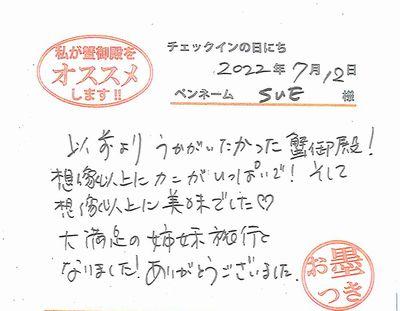 私が蟹御殿を
オススメ
します!!
チェックインの日にち
2022年7月12日
ペンネーム SUE 様
以前より うかがいたかった 蟹御殿!
想像以上にカニがいっぱいで! そして
想像以上に美味でした♡
大満足の姉妹旅行と
なりました! ありがとうございました.
お墨
つき